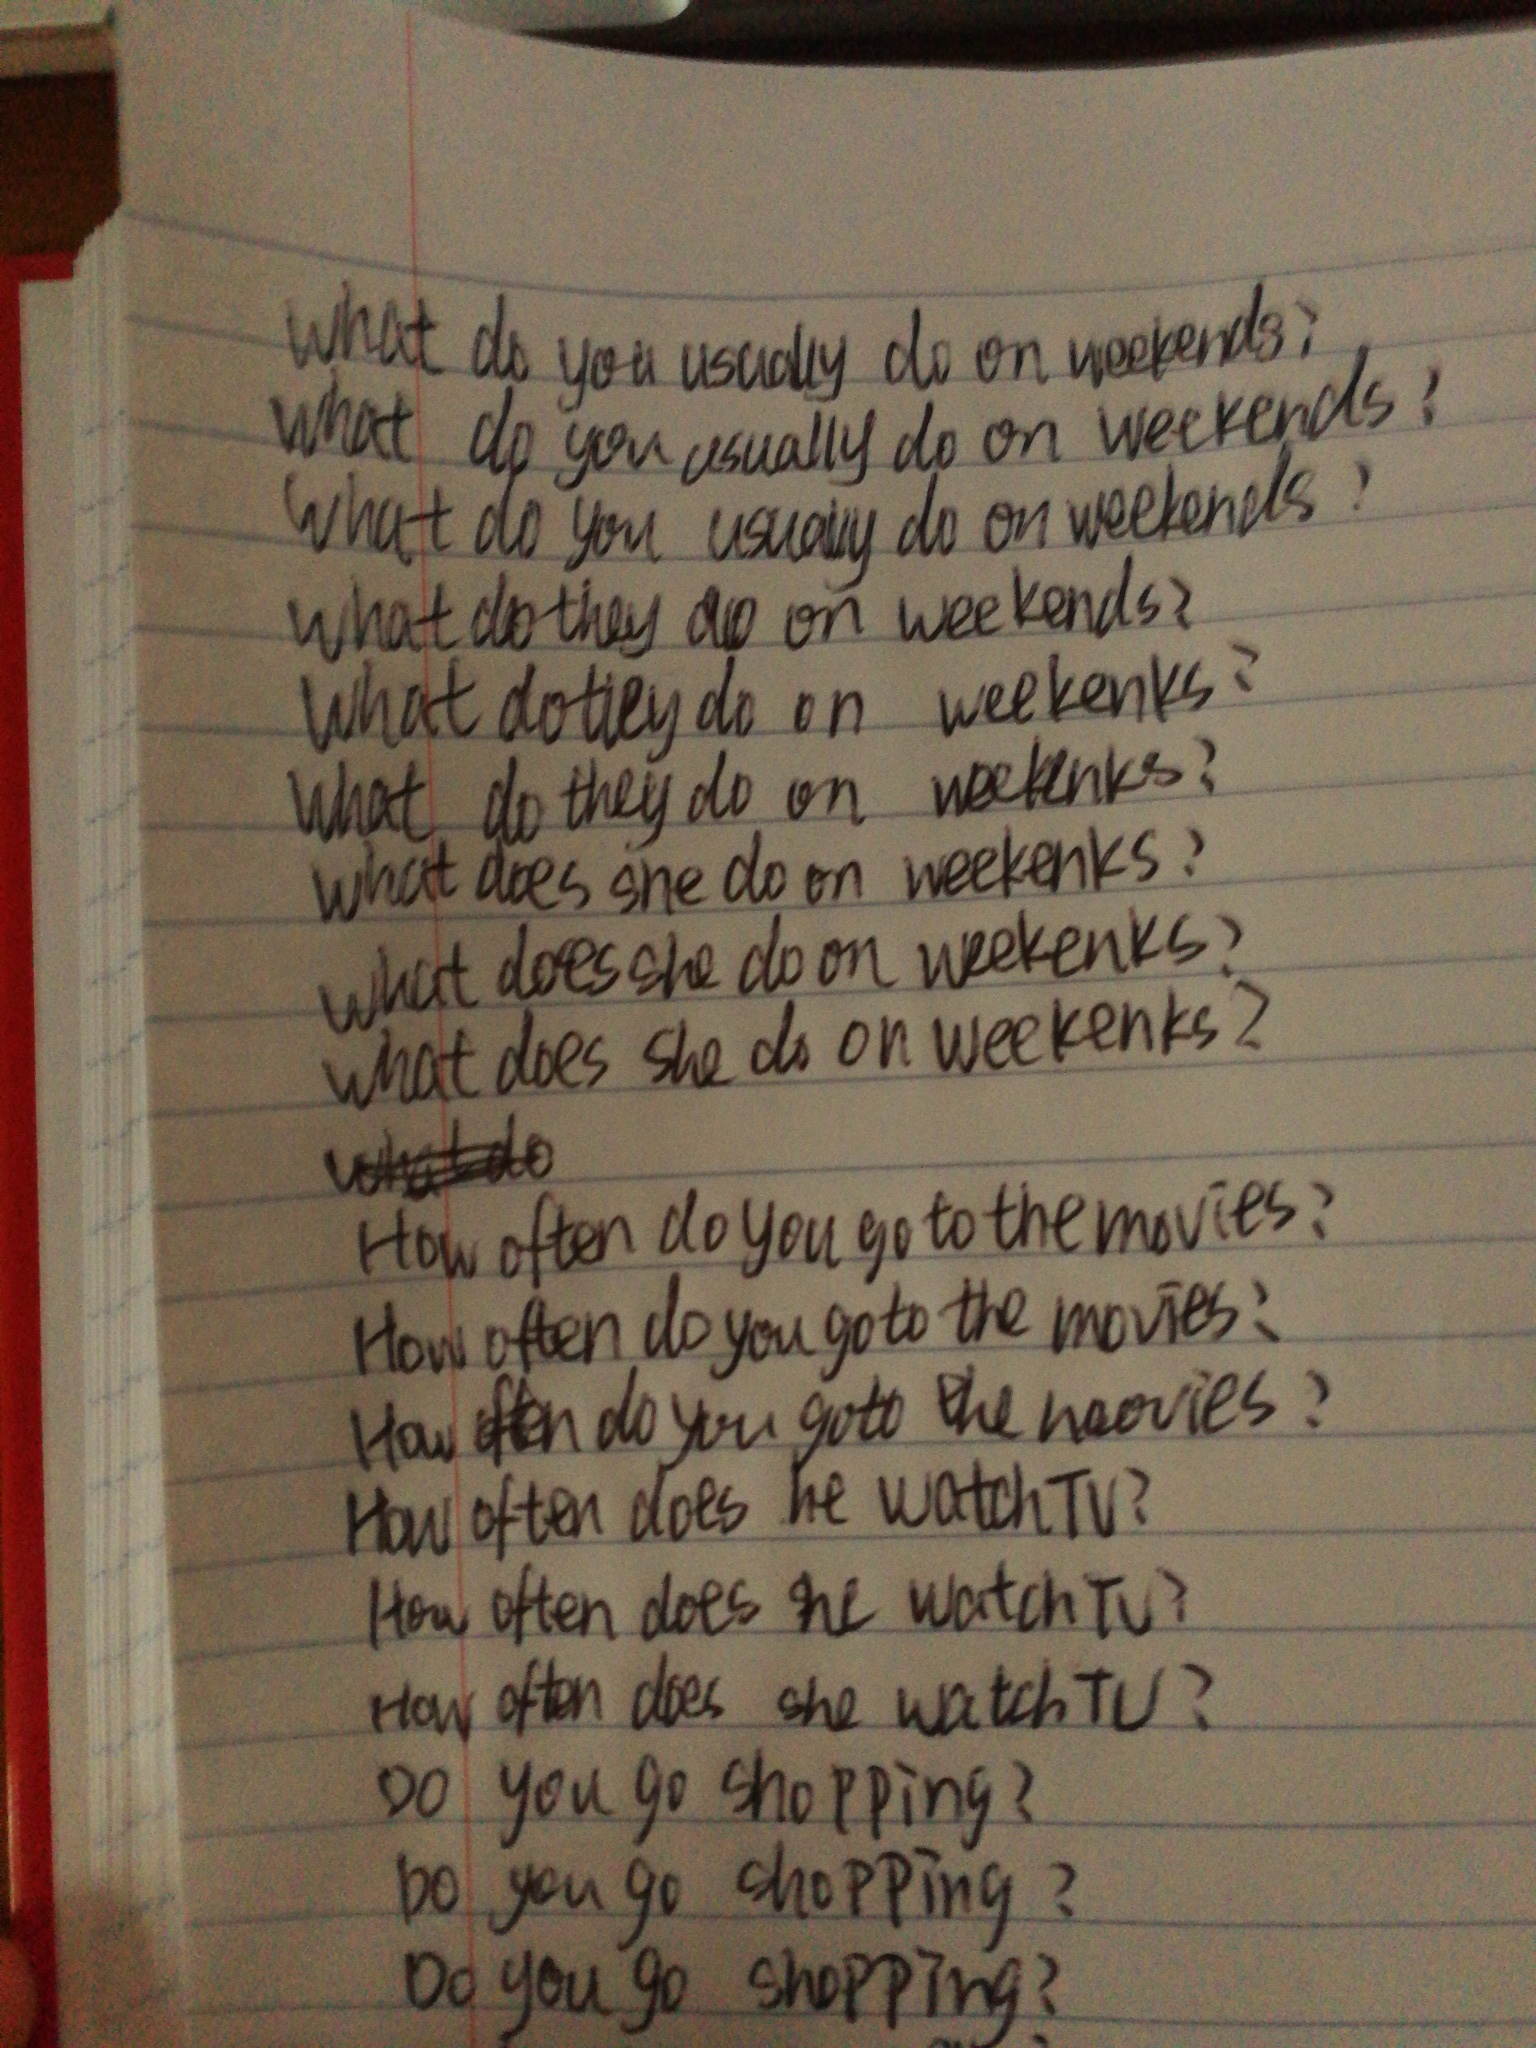 What do you usually do on weekends?
What do you usually do on weekends?
What do you usually do on weekends?
What do they do on weekends?
What do tley do on weekenks?
What do they do on weekenks?
What does she do on weekenks?
What does she do on weekenks?
What does she do on weekenks?
What do
How often do you go to the movies?
How often do you go to the movies?
How often do you go to the moovies?
How often does he watch TV?
How often does she watch TV?
How often does she watch TV?
Do you go shopping?
Do you go shopping?
Do you go shopping?